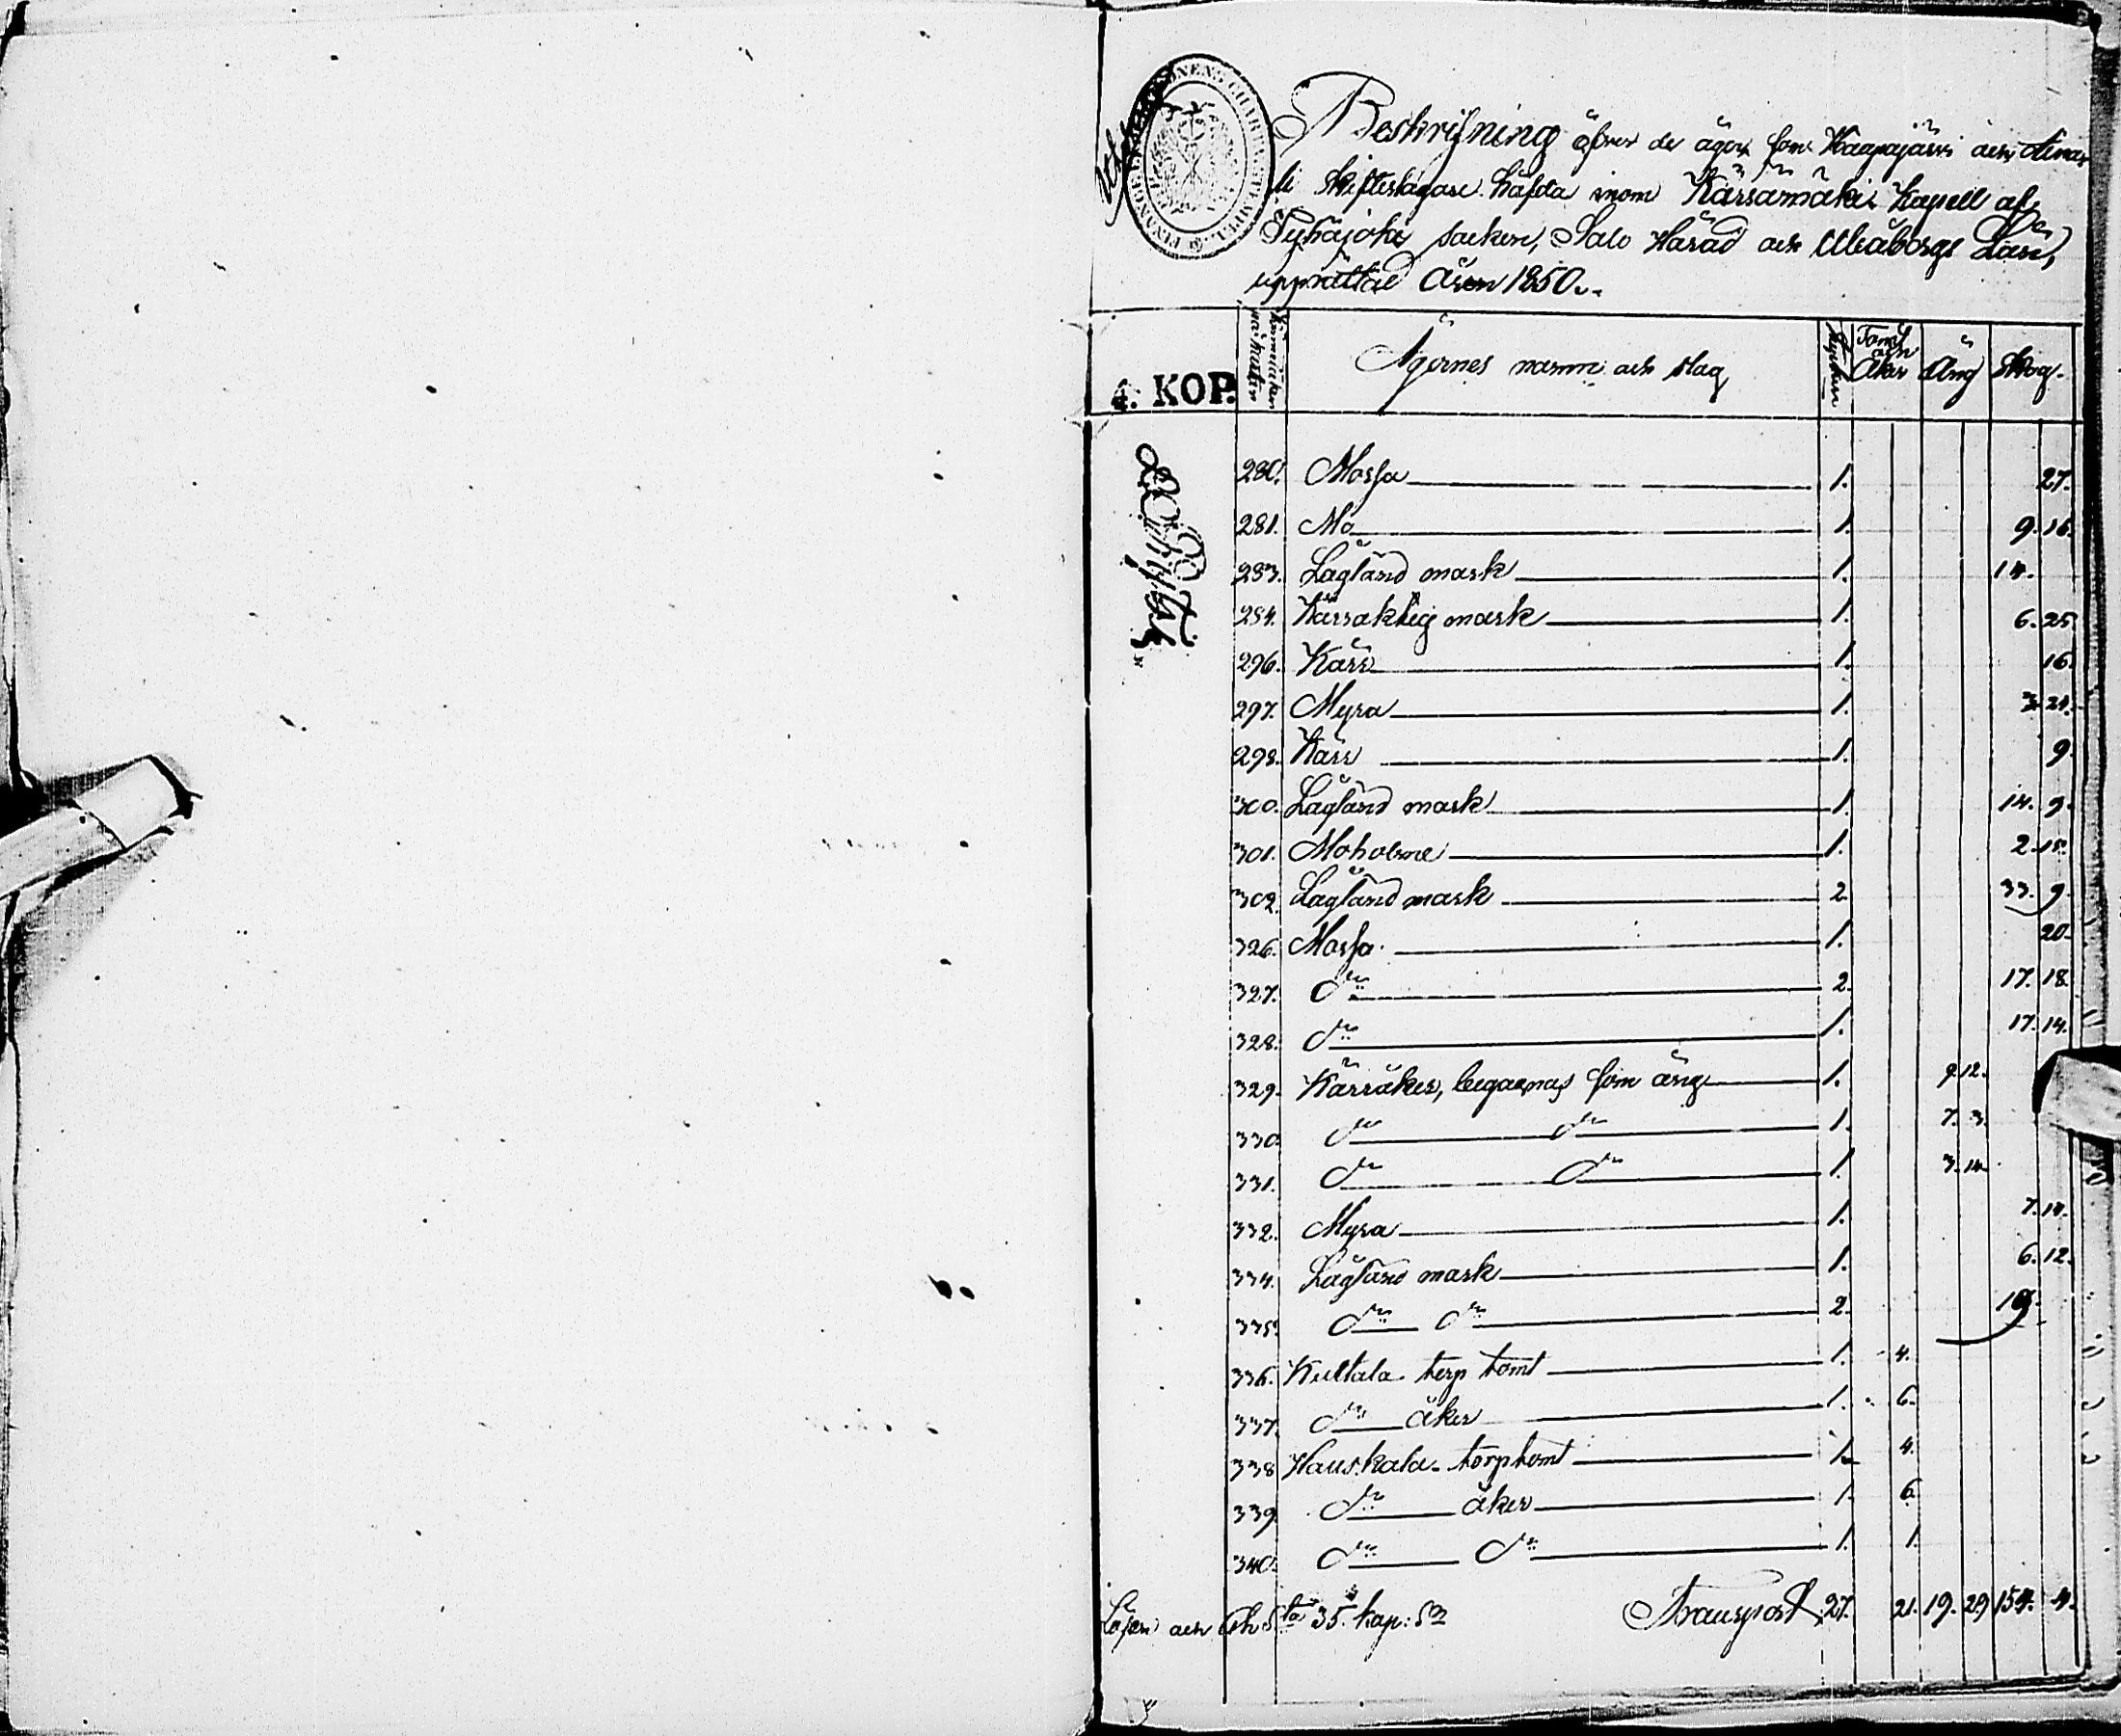 Beskrifning öfver de ägor som Haapajärvi och
skifteslagare häfda inom Kärsämäki Kapell af
Pyhäjoki socken, Salo Härad och Uleåborgs Län,
upprättad åren 1850.
Ägornes namn och slag
Tomt och Åker Äng Skog.
4. KOP.
Afskrift
280. Mossa 1. 27.
281. Mo 1. 9. 16.
283. Lågländ mark 1. 14.
284. Kärraktig mark 1. 6. 25.
296. Kärr 1. 16.
297. Myra 1. 3. 24.
298. Kärr 1. 9.
300. Lågländ mark 1. 14. 9.
301. Moholme 1. 2. 15.
302. Lågländ mark 2. 33. 9.
326. Mossa 1. 20.
327. do 2. 17. 18.
328. do 1. 17. 14.
329. Kärråker, begagnas som äng 1. 9. 12.
330. do do 1. 7. 3.
331. do do 1. 3. 14.
332. Myra 1. 7. 14.
334. Lågländ mark 1. 6. 12.
335. do do 2.
336. Kultala torp tomt 1. 4.
337. do åker 1. 6.
338 Hauskala torp tomt 1. 4.
339. do åker 1. 6.
340. do do 1. 1.
Lösen och 35 kop: Sm Transport 27. 21. 19. 29 154. 4.